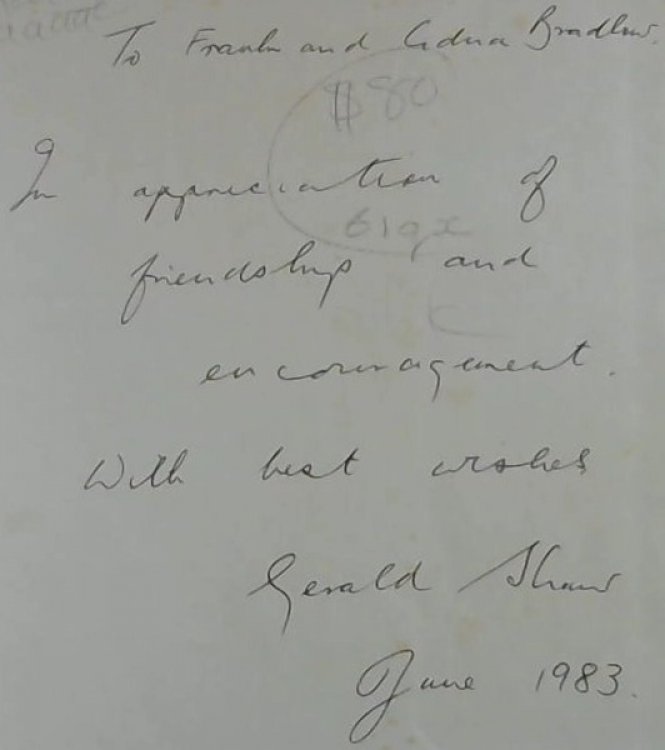 To Frank and Edna Bradlow.
$80
In appreciation of
friendship and
encouragement.
With best wishes
Gerald Shaw
June 1983.